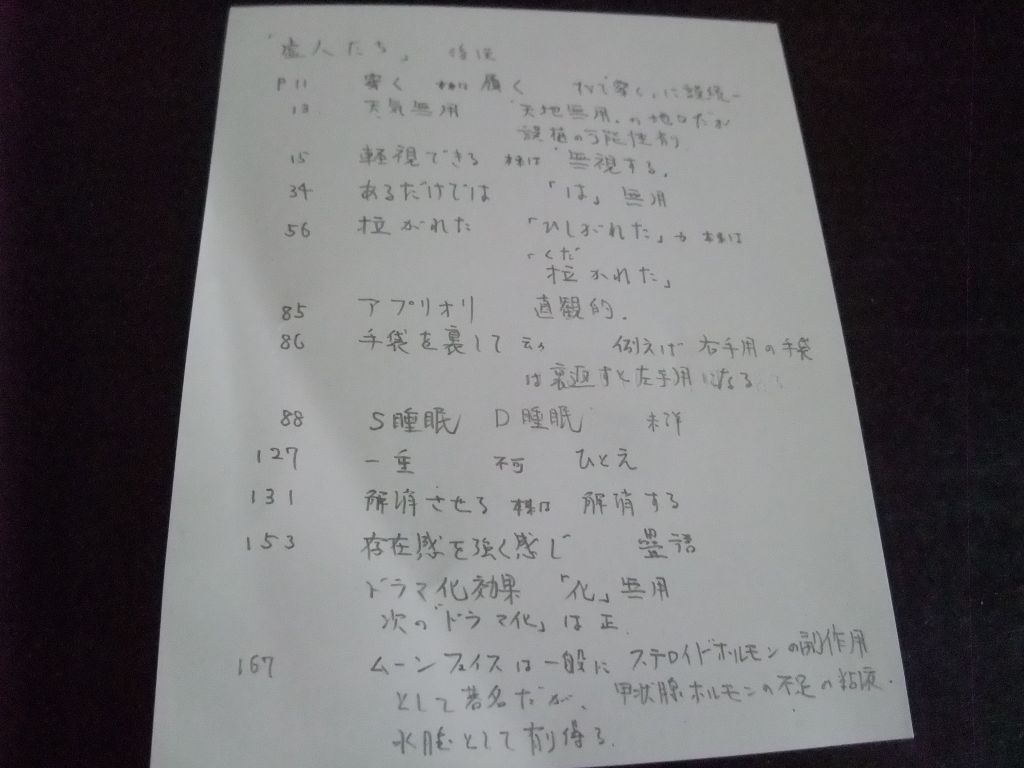 「虚人たち」
P11 穿く 履く
13 天気無用 「天地無用」の地口だが
誤植の可能性有
15 軽視できる 無視する。
34 あるだけでは 「は」無用
56 拉がれた 「ひしがれた」か
「くだ
拉かれた」
85 アプリオリ 直観的.
86 手袋を裏して 云々 例えば 右手用の手袋
は裏返すと左手用になる
88 S睡眠 D睡眠 未詳
127 一重 不可 ひとえ
131 解消させる 解消する
153 存在感を強く感じ 畳語
ドラマ化効果 「化」無用
次の「ドラマ化」は正
167 ムーンフェイスは一般に ステロイドホルモンの副作用
として著名だが、甲状腺ホルモンの不足の粘液
水腫として有り得る.